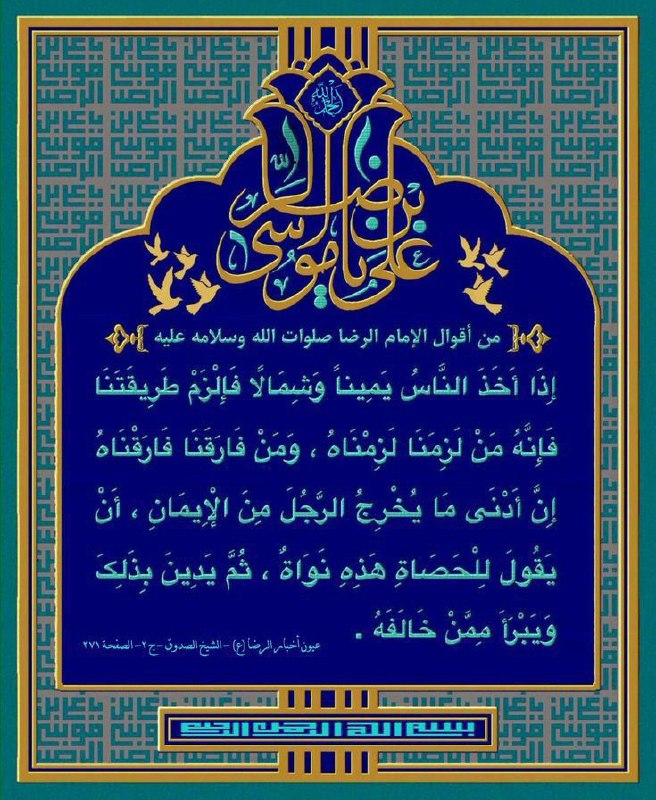 يا علي بن موسى الرضا
من أقوال الإمام الرضا صلوات الله وسلامه عليه
إِذَا أَخَذَ النَّاسُ يَمِيناً وَشِمَالًا فَإِلْزَمْ طَرِيقَتَنَا
فَإِنَّهُ مَنْ لَزِمَنَا لَزِمْنَاهُ ، وَمَنْ فَارَقَنَا فَارَقْنَاهُ
إِنَّ أَدْنَى مَا يُخْرِجُ الرَّجُلَ مِنَ الْإِيمَانِ ، أَنْ
يَقُولَ لِلْحَصَاةِ هَذِهِ نَوَاةٌ ، ثُمَّ يَدِينَ بِذَلِكَ
وَيَبْرَأَ مِمَّنْ خَالَفَهُ .
عيون أخبار الرضا (ع) - الشيخ الصدوق - ج ٢ - الصفحة ٢٧١
بسم الله الرحمن الرحيم